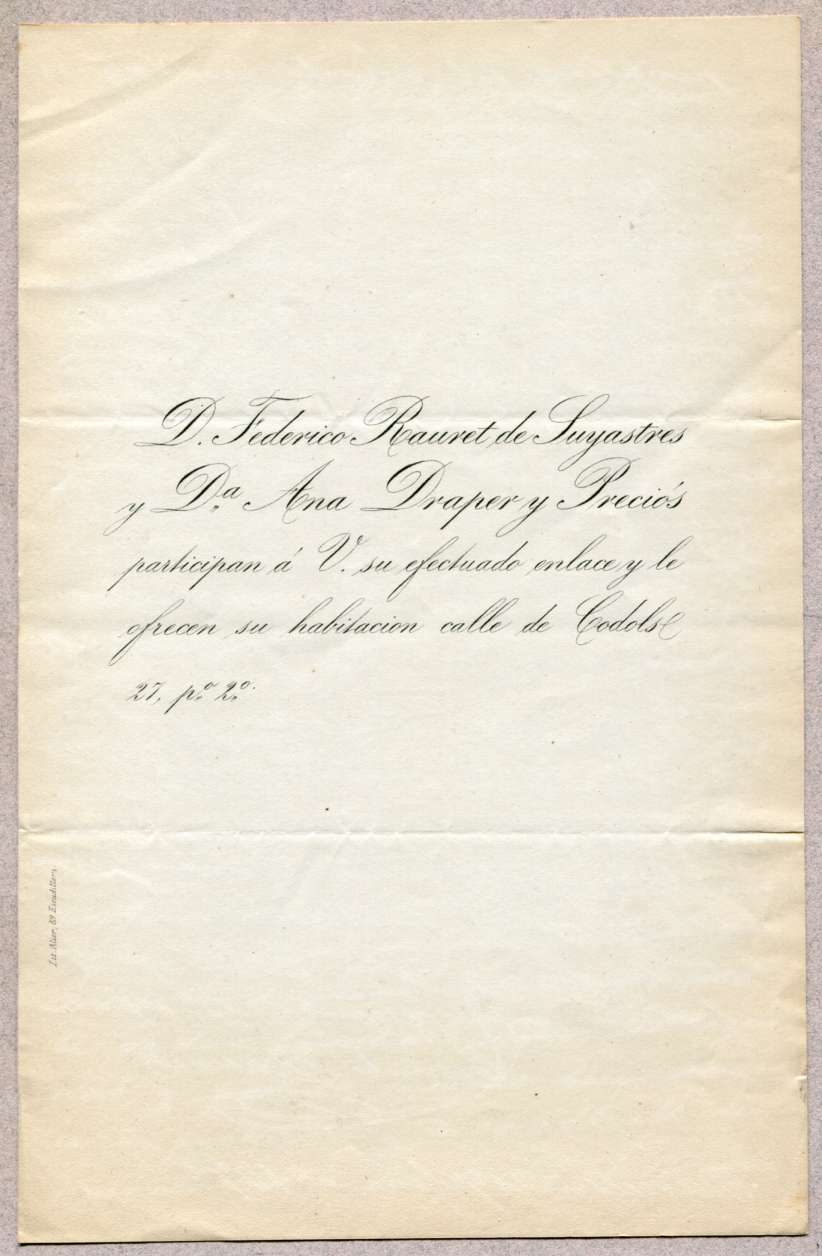 D. Federico Rauret de Suyastres
y D.ª Ana Draper y Preciós
participan á V. su efectuado enlace y le
ofrecen su habitacion calle de Codols
27, p.º 2.º
Lit. Aleu, 59 Escudillers